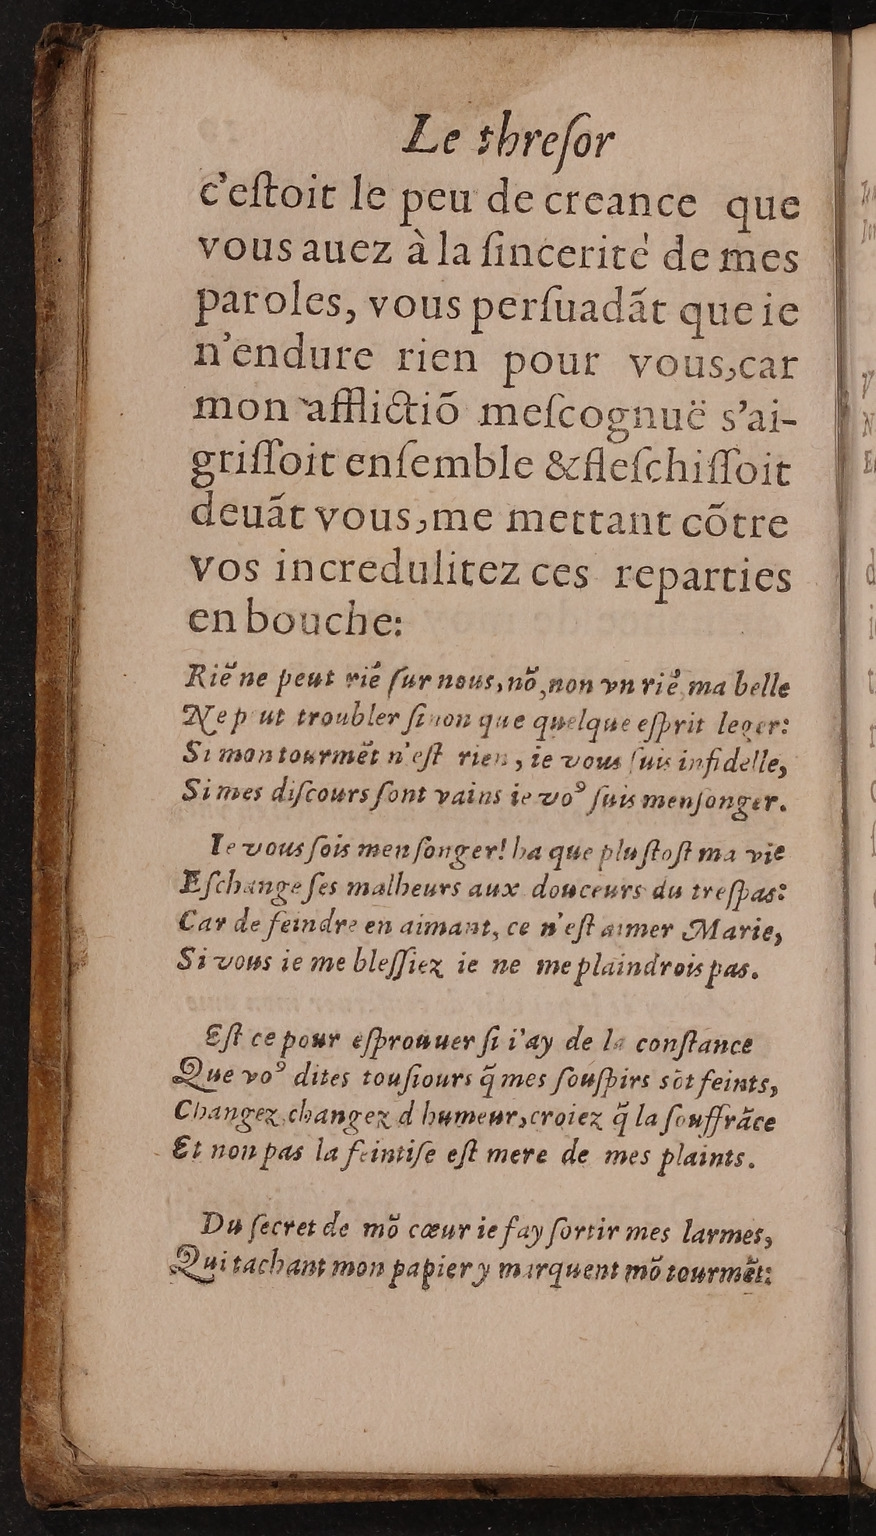 Le threſor
c'eſtoit le peu de creance que
vous auez à la ſincerité de mes
paroles, vous perſuadãt que ie
n'endure rien pour vous,car
mon afflictiõ meſcognuë s'ai-
griſſoit enſemble & fleſchiſſoit
deuãt vous,me mettant cõtre
vos incredulitez ces reparties
en bouche:
Riẽ ne peut riẽ ſur nous,nõ,non vn riẽ ma belle
Ne p ut troubler ſinon que quelque eſprit leger:
Si mon tourmẽt n'eſt rien, ie vous ſuis infidelle,
Si mes diſcours ſont vains ie voꝰ ſuis menſonger.
Ie vous ſois menſonger! ha que pluſtoſt ma vie
Eſchange ſes malheurs aux douceurs du treſpas:
Car de feindre en aimant, ce n'eſt aimer Marie,
Si vous ie me bleſſiez ie ne me plaindrois pas.
Eſt ce pour eſprouuer ſi i'ay de la conſtance
Que voꝰ dites touſiours q̃ mes ſouſpirs sõt feints,
Changez,changez d humeur,croiez q̃ la ſouffrãce
Et non pas la feintiſe eſt mere de mes plaints.
Du ſecret de mõ cœur ie fay ſortir mes larmes,
Qui tachant mon papier y marquent mõ tourmẽt: